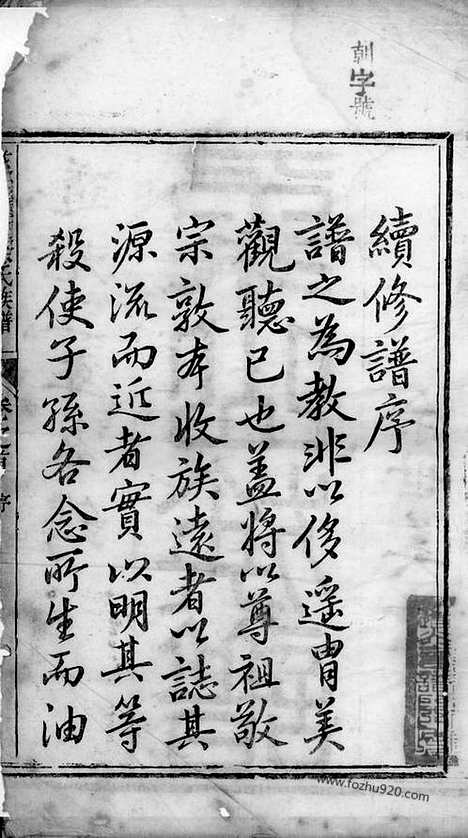 朝字號
續修譜序
譜之為教非以侈遥冑美
觀聽已也盖將以尊祖敬
宗敦本收族遠者以誌其
源流而近者實以明其等
殺使子孫各念所生而油
氏族譜
序
www.fozhu920.com